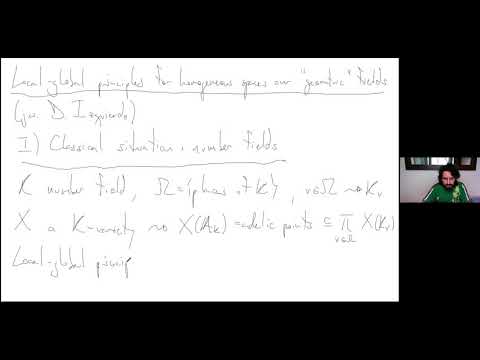 Local-global principles for homogeneous spaces over "geometric" fields
(jw. D. Izquierdo)
I) Classical situation: number fields
K number field, Ω={places of K}, v∈Ω ⇝ K_v
X a K-variety ⇝ X(A_K) = adelic points ⊆ ∏_{v∈Ω} X(K_v)
Local-global princip